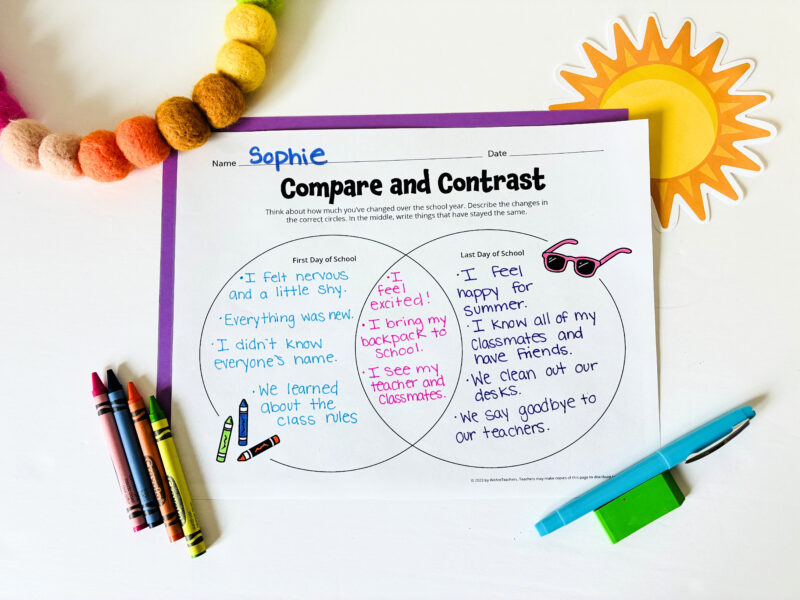 Name Sophie Date
Compare and Contrast
Think about how much you've changed over the school year. Describe the changes in
the correct circles. In the middle, write things that have stayed the same.
First Day of School
• I felt nervous
and a little shy.
• Everything was new.
• I didn't know
everyone's name.
• We learned
about the
class rules
• I
feel
excited!
• I bring my
backpack to
school.
• I see my
teacher and
classmates.
Last Day of School
• I feel
happy for
summer.
• I know all of my
classmates and
have friends.
• We clean out our
desks.
• We say goodbye to
our teachers.
© 2023 by WeAreTeachers. Teachers may make copies of this page to